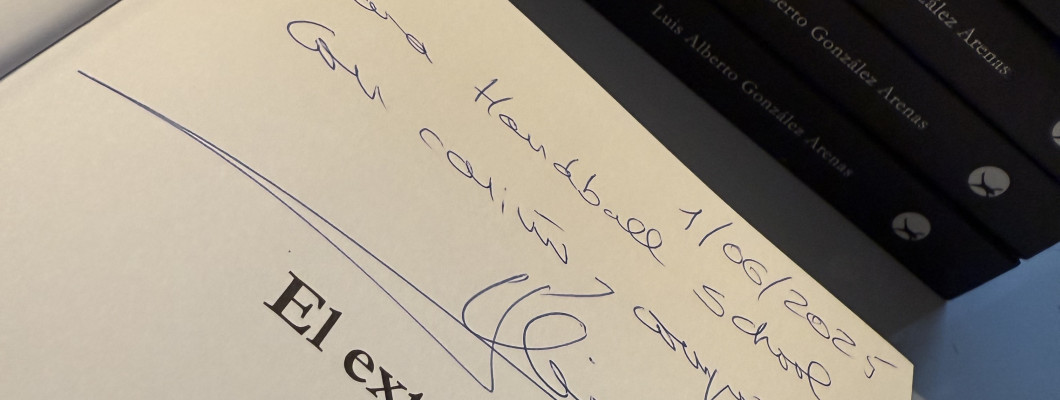 1/06/2025
Handball School
Con cariño y
El ext
Luis Alberto González Arenas
berto González Arenas
zález Arenas